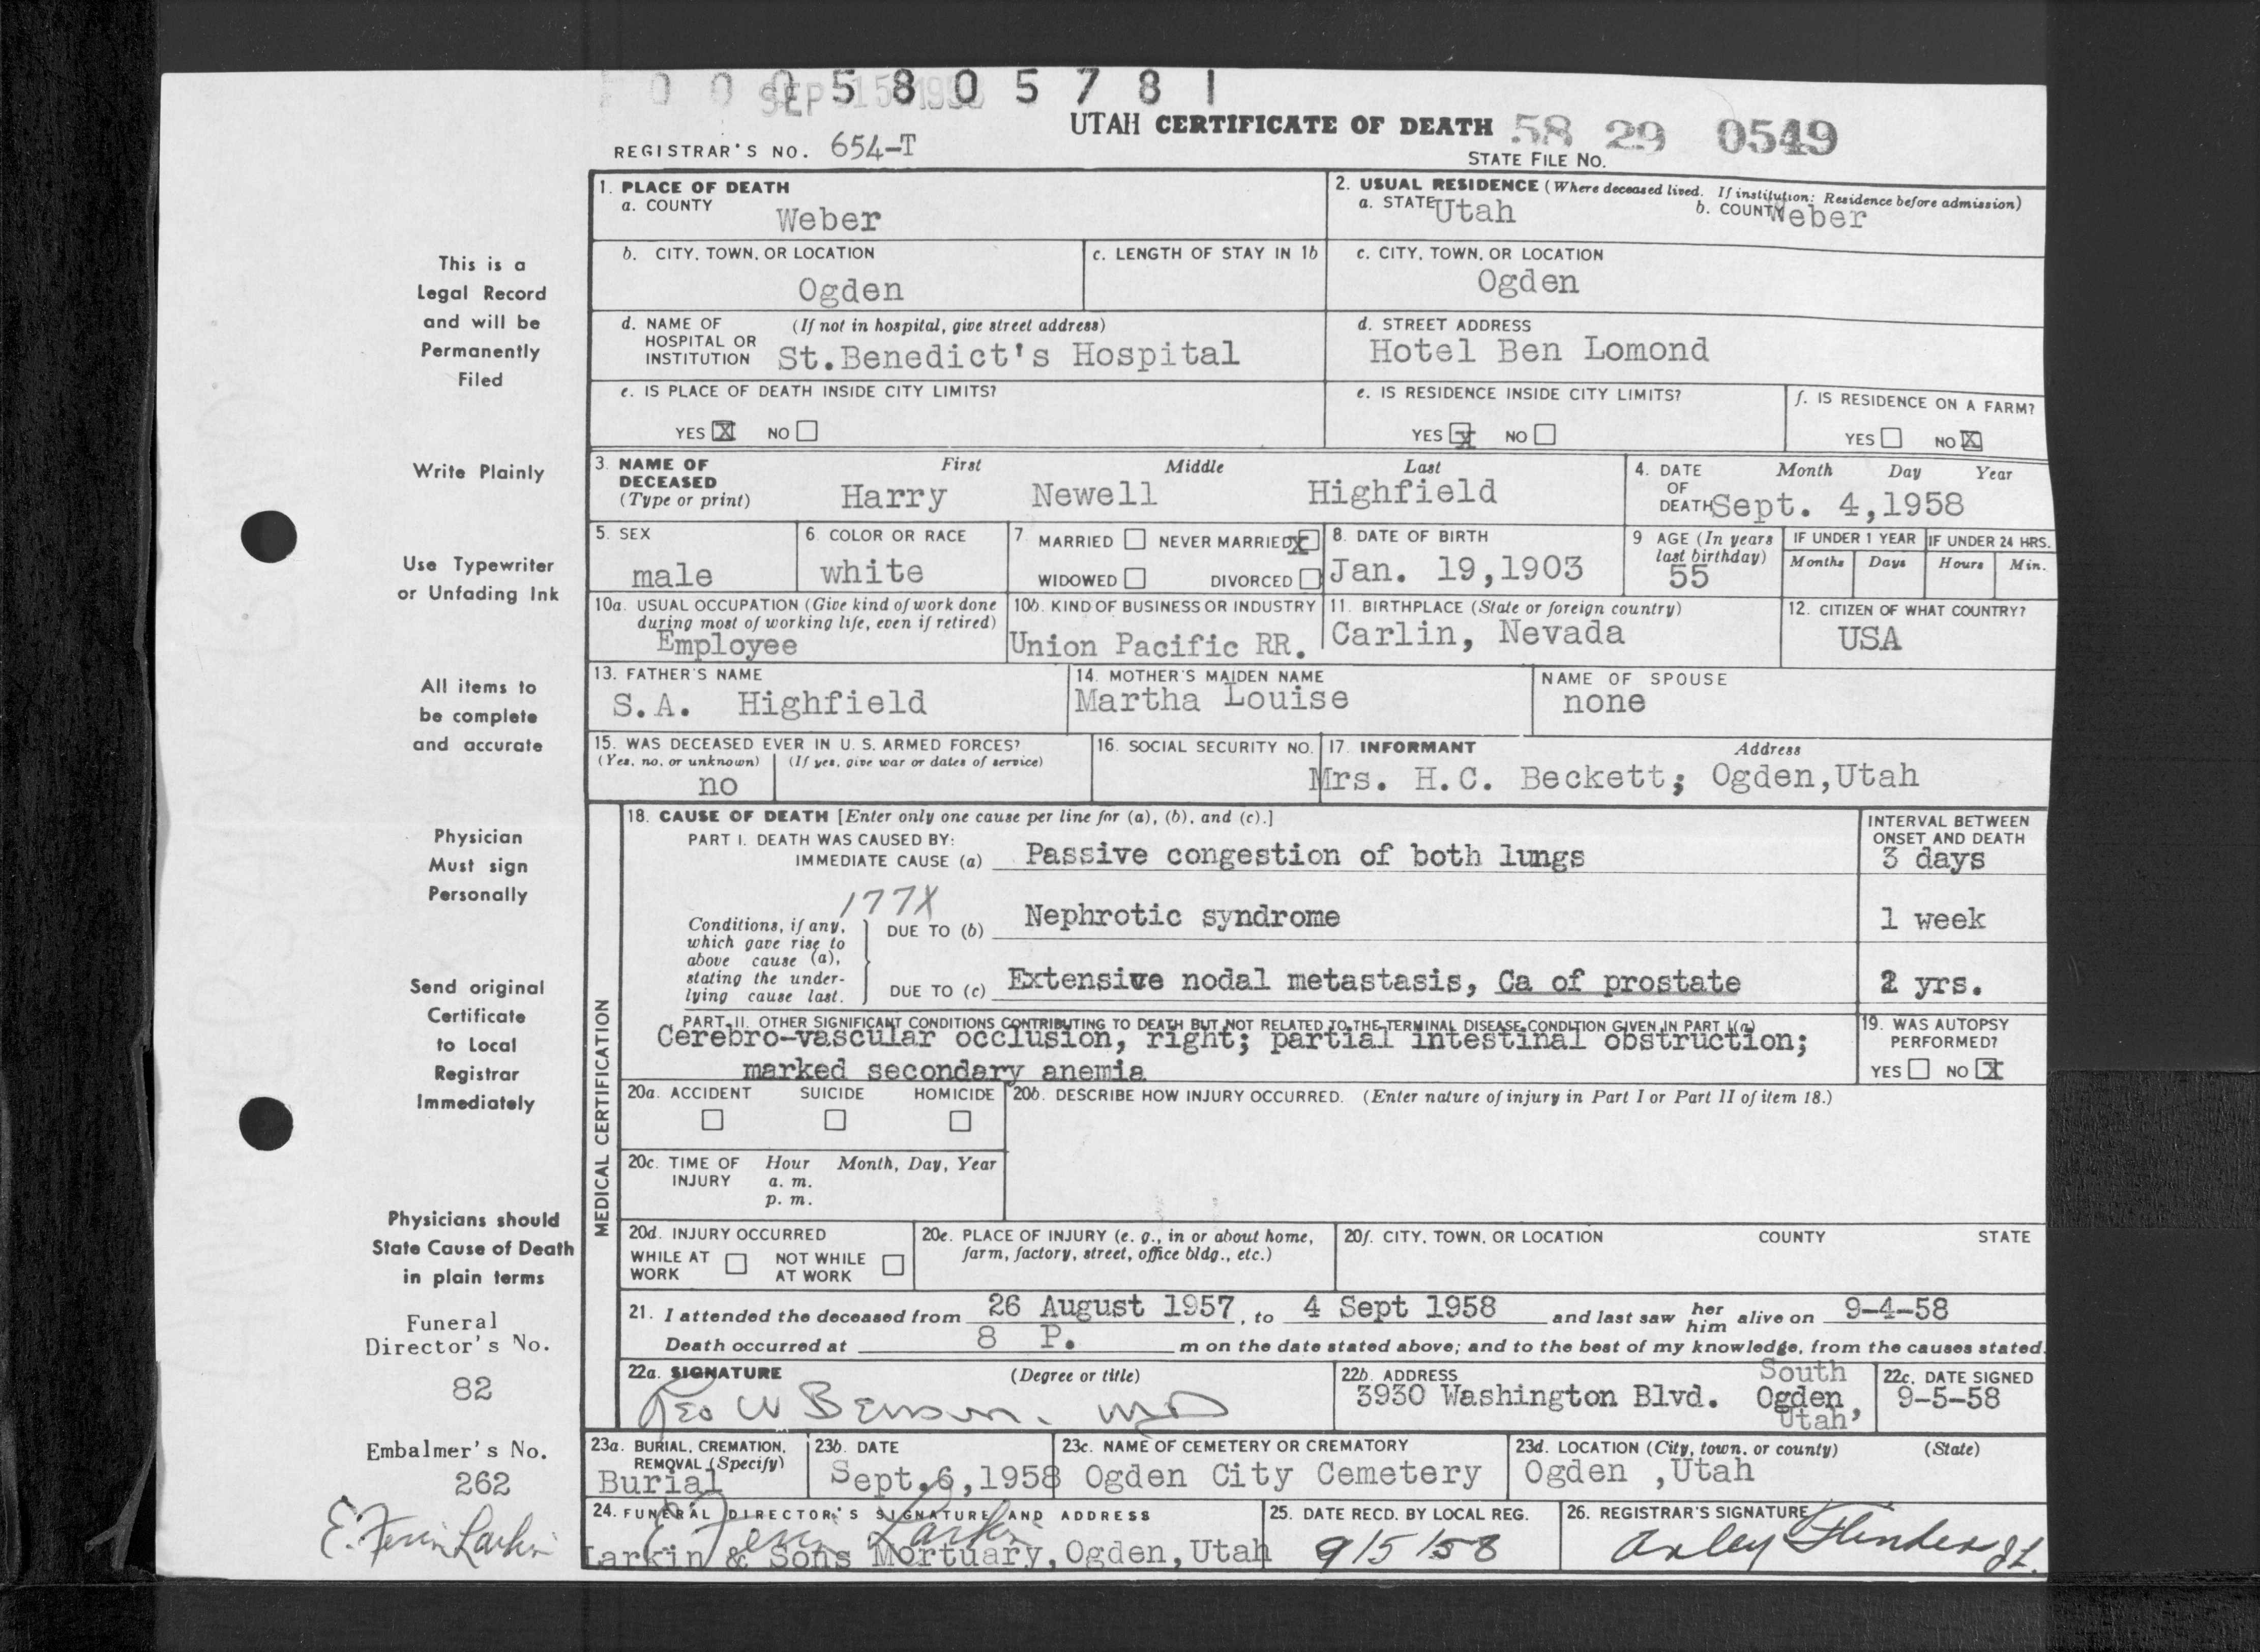 0 0 0 5 8 0 5 7 8 1
SEP 15 1958
UTAH CERTIFICATE OF DEATH 58 29 0549
REGISTRAR'S NO. 654-T
STATE FILE NO.
1. PLACE OF DEATH
a. COUNTY
Weber
2. USUAL RESIDENCE (Where deceased lived. If institution: Residence before admission)
a. STATE Utah b. COUNTY Weber
b. CITY, TOWN, OR LOCATION
Ogden
c. LENGTH OF STAY IN 1b
c. CITY, TOWN, OR LOCATION
Ogden
d. NAME OF (If not in hospital, give street address)
HOSPITAL OR
INSTITUTION St.Benedict's Hospital
d. STREET ADDRESS
Hotel Ben Lomond
e. IS PLACE OF DEATH INSIDE CITY LIMITS?
YES X NO
e. IS RESIDENCE INSIDE CITY LIMITS?
YES X NO
f. IS RESIDENCE ON A FARM?
YES NO X
3. NAME OF DECEASED (Type or print)
First Middle Last
Harry Newell Highfield
4. DATE OF DEATH
Month Day Year
Sept. 4,1958
5. SEX
male
6. COLOR OR RACE
white
7. MARRIED NEVER MARRIED X
WIDOWED DIVORCED
8. DATE OF BIRTH
Jan. 19,1903
9 AGE (In years last birthday)
55
IF UNDER 1 YEAR
Months Days
IF UNDER 24 HRS.
Hours Min.
10a. USUAL OCCUPATION (Give kind of work done
during most of working life, even if retired)
Employee
10b. KIND OF BUSINESS OR INDUSTRY
Union Pacific RR.
11. BIRTHPLACE (State or foreign country)
Carlin, Nevada
12. CITIZEN OF WHAT COUNTRY?
USA
13. FATHER'S NAME
S.A. Highfield
14. MOTHER'S MAIDEN NAME
Martha Louise
NAME OF SPOUSE
none
15. WAS DECEASED EVER IN U. S. ARMED FORCES?
(Yes, no, or unknown) (If yes, give war or dates of service)
no
16. SOCIAL SECURITY NO.
17. INFORMANT Address
Mrs. H.C. Beckett; Ogden,Utah
MEDICAL CERTIFICATION
18. CAUSE OF DEATH [Enter only one cause per line for (a), (b), and (c).]
PART I. DEATH WAS CAUSED BY:
IMMEDIATE CAUSE (a) Passive congestion of both lungs
INTERVAL BETWEEN
ONSET AND DEATH
3 days
177X
Conditions, if any,
which gave rise to
above cause (a),
stating the under-
lying cause last.
DUE TO (b) Nephrotic syndrome
1 week
DUE TO (c) Extensive nodal metastasis, Ca of prostate
2 yrs.
PART II. OTHER SIGNIFICANT CONDITIONS CONTRIBUTING TO DEATH BUT NOT RELATED TO THE TERMINAL DISEASE CONDITION GIVEN IN PART I(a)
Cerebro-vascular occlusion, right; partial intestinal obstruction;
marked secondary anemia
19. WAS AUTOPSY
PERFORMED?
YES NO X
20a. ACCIDENT SUICIDE HOMICIDE
20b. DESCRIBE HOW INJURY OCCURRED. (Enter nature of injury in Part I or Part II of item 18.)
20c. TIME OF INJURY
Hour Month, Day, Year
a. m.
p. m.
20d. INJURY OCCURRED
WHILE AT WORK NOT WHILE AT WORK
20e. PLACE OF INJURY (e. g., in or about home,
farm, factory, street, office bldg., etc.)
20f. CITY, TOWN, OR LOCATION COUNTY STATE
21. I attended the deceased from 26 August 1957, to 4 Sept 1958 and last saw her him alive on 9-4-58
Death occurred at 8 P. m on the date stated above; and to the best of my knowledge, from the causes stated.
22a. SIGNATURE (Degree or title)
Geo W Benson. MD
22b. ADDRESS
3930 Washington Blvd. South Ogden, Utah
22c. DATE SIGNED
9-5-58
23a. BURIAL, CREMATION,
REMOVAL (Specify)
Burial
23b. DATE
Sept.6,1958
23c. NAME OF CEMETERY OR CREMATORY
Ogden City Cemetery
23d. LOCATION (City, town, or county) (State)
Ogden ,Utah
24. FUNERAL DIRECTOR'S SIGNATURE AND ADDRESS
E. Ferrin Larkin
Larkin & Sons Mortuary, Ogden, Utah
25. DATE RECD. BY LOCAL REG.
9/5/58
26. REGISTRAR'S SIGNATURE
This is a
Legal Record
and will be
Permanently
Filed
Write Plainly
Use Typewriter
or Unfading Ink
All items to
be complete
and accurate
Physician
Must sign
Personally
Send original
Certificate
to Local
Registrar
Immediately
Physicians should
State Cause of Death
in plain terms
Funeral
Director's No.
82
Embalmer's No.
262
E. Ferrin Larkin